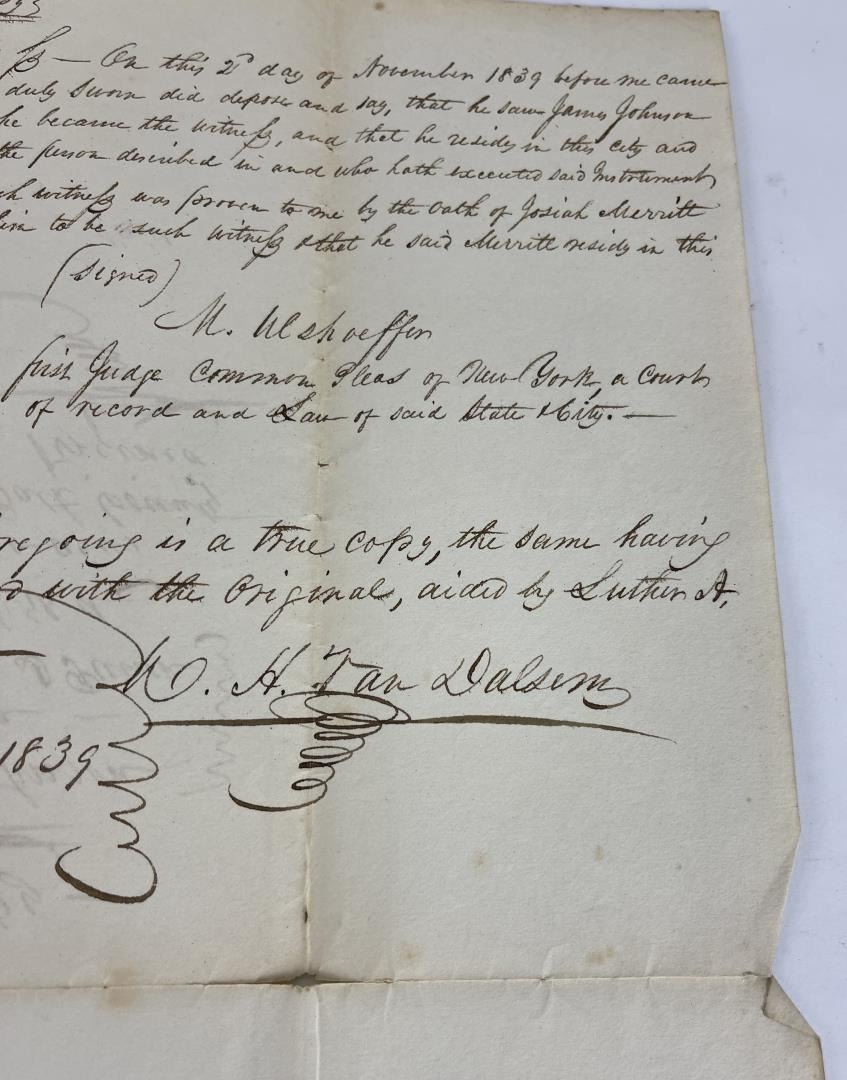 ss — On this 2d day of November 1839 before me came
duly sworn did depose and say, that he saw James Johnson
he became the witness, and that he resides in this city and
the person described in and who hath executed said Instrument
witness was proven to me by the oath of Josiah Merritt
him to be such witness & that he said Merritt resides in this
(signed)
M. Ulshoeffer
first Judge Common Pleas of New York, a Court
of record and Law of said State & City. —
regoing is a true copy, the same having
with the Original, aided by Luther A.
H. Van Dalsem
1839